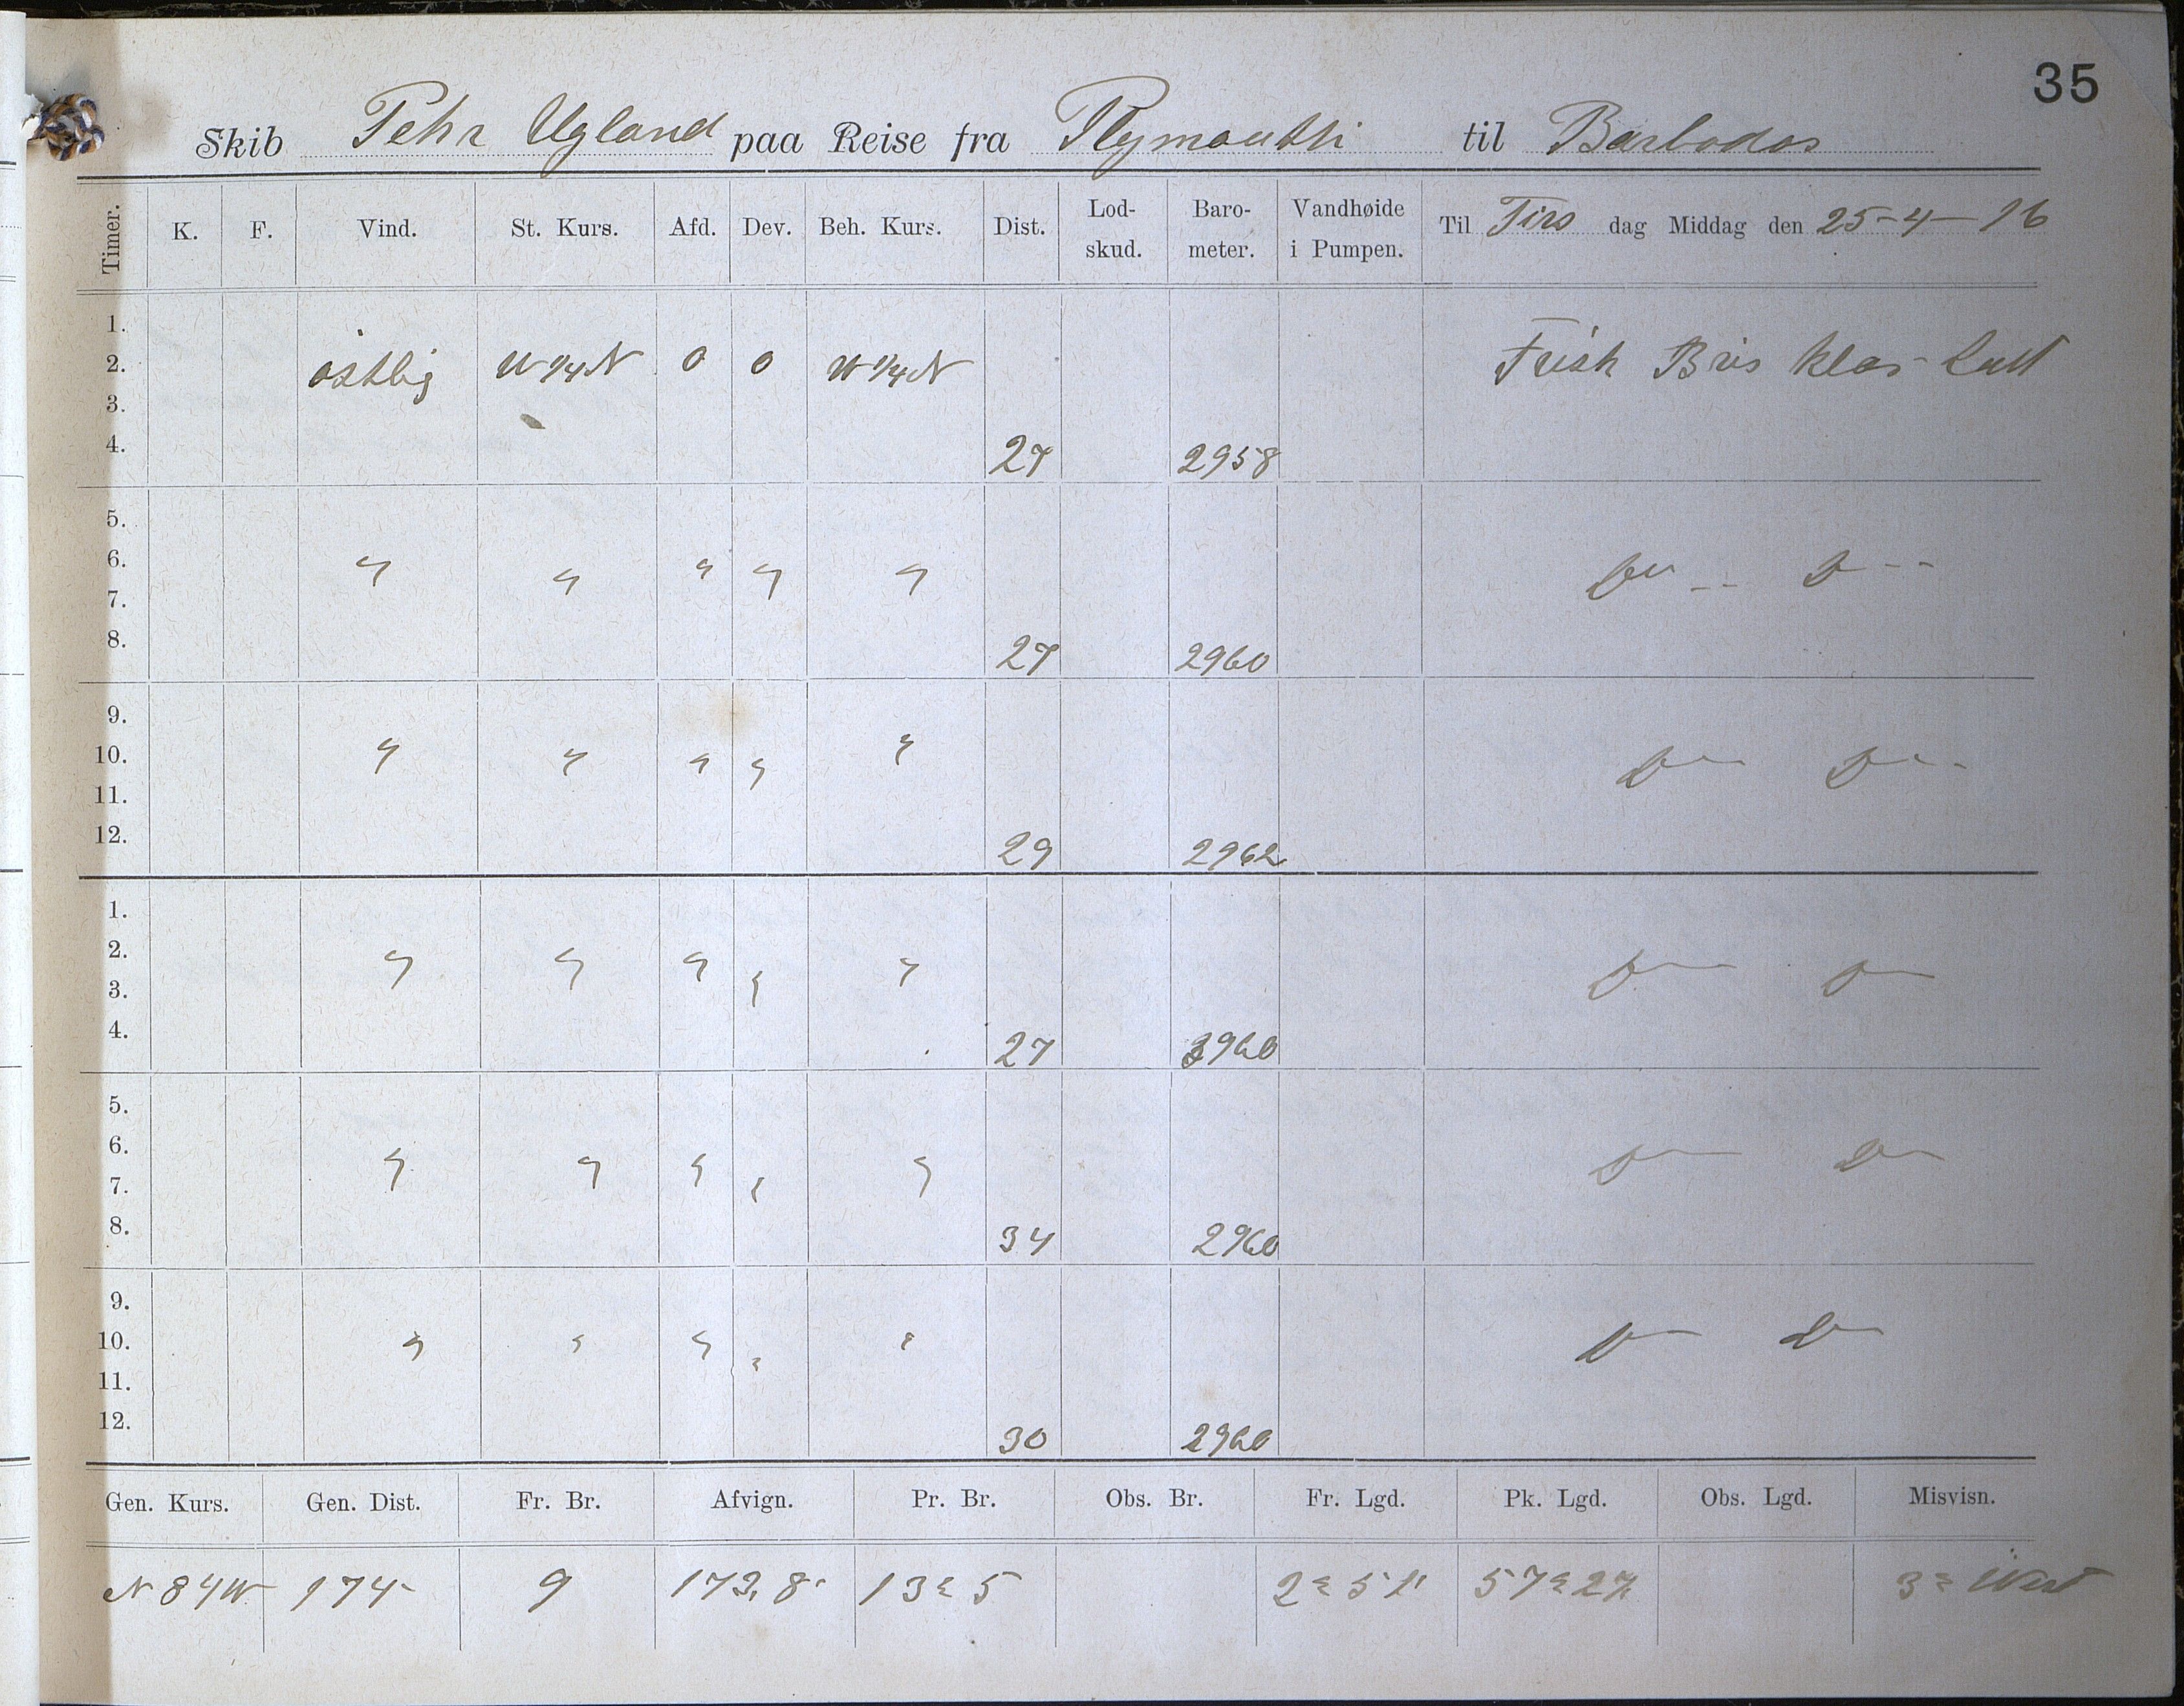 35
Skib Pehr Ugland paa Reise fra Plymouth til Barbados
Timer. K. F. Vind. St. Kurs. Afd. Dev. Beh. Kurs. Dist. Lod-skud. Baro-meter. Vandhøide i Pumpen. Til Tirs dag Middag den 25-4-16
1.
2. östlig W 1/4 N 0 0 W 1/4 N Frisk Bris klar luft
3.
4. 27 2958
5.
6. " " " " " Do -- Do --
7.
8. 27 2960
9.
10. " " " " " Do -- Do --
11.
12. 29 2962
1.
2. " " " " " Do — Do —
3.
4. 27 2960
5.
6. " " " " " Do — Do —
7.
8. 34 2960
9.
10. " " " " " Do — Do —
11.
12. 30 2960
Gen. Kurs. Gen. Dist. Fr. Br. Afvign. Pr. Br. Obs. Br. Fr. Lgd. Pk. Lgd. Obs. Lgd. Misvisn.
N 84 W 174 9 173,8' 13° 5 2° 51' 57° 27 3° West